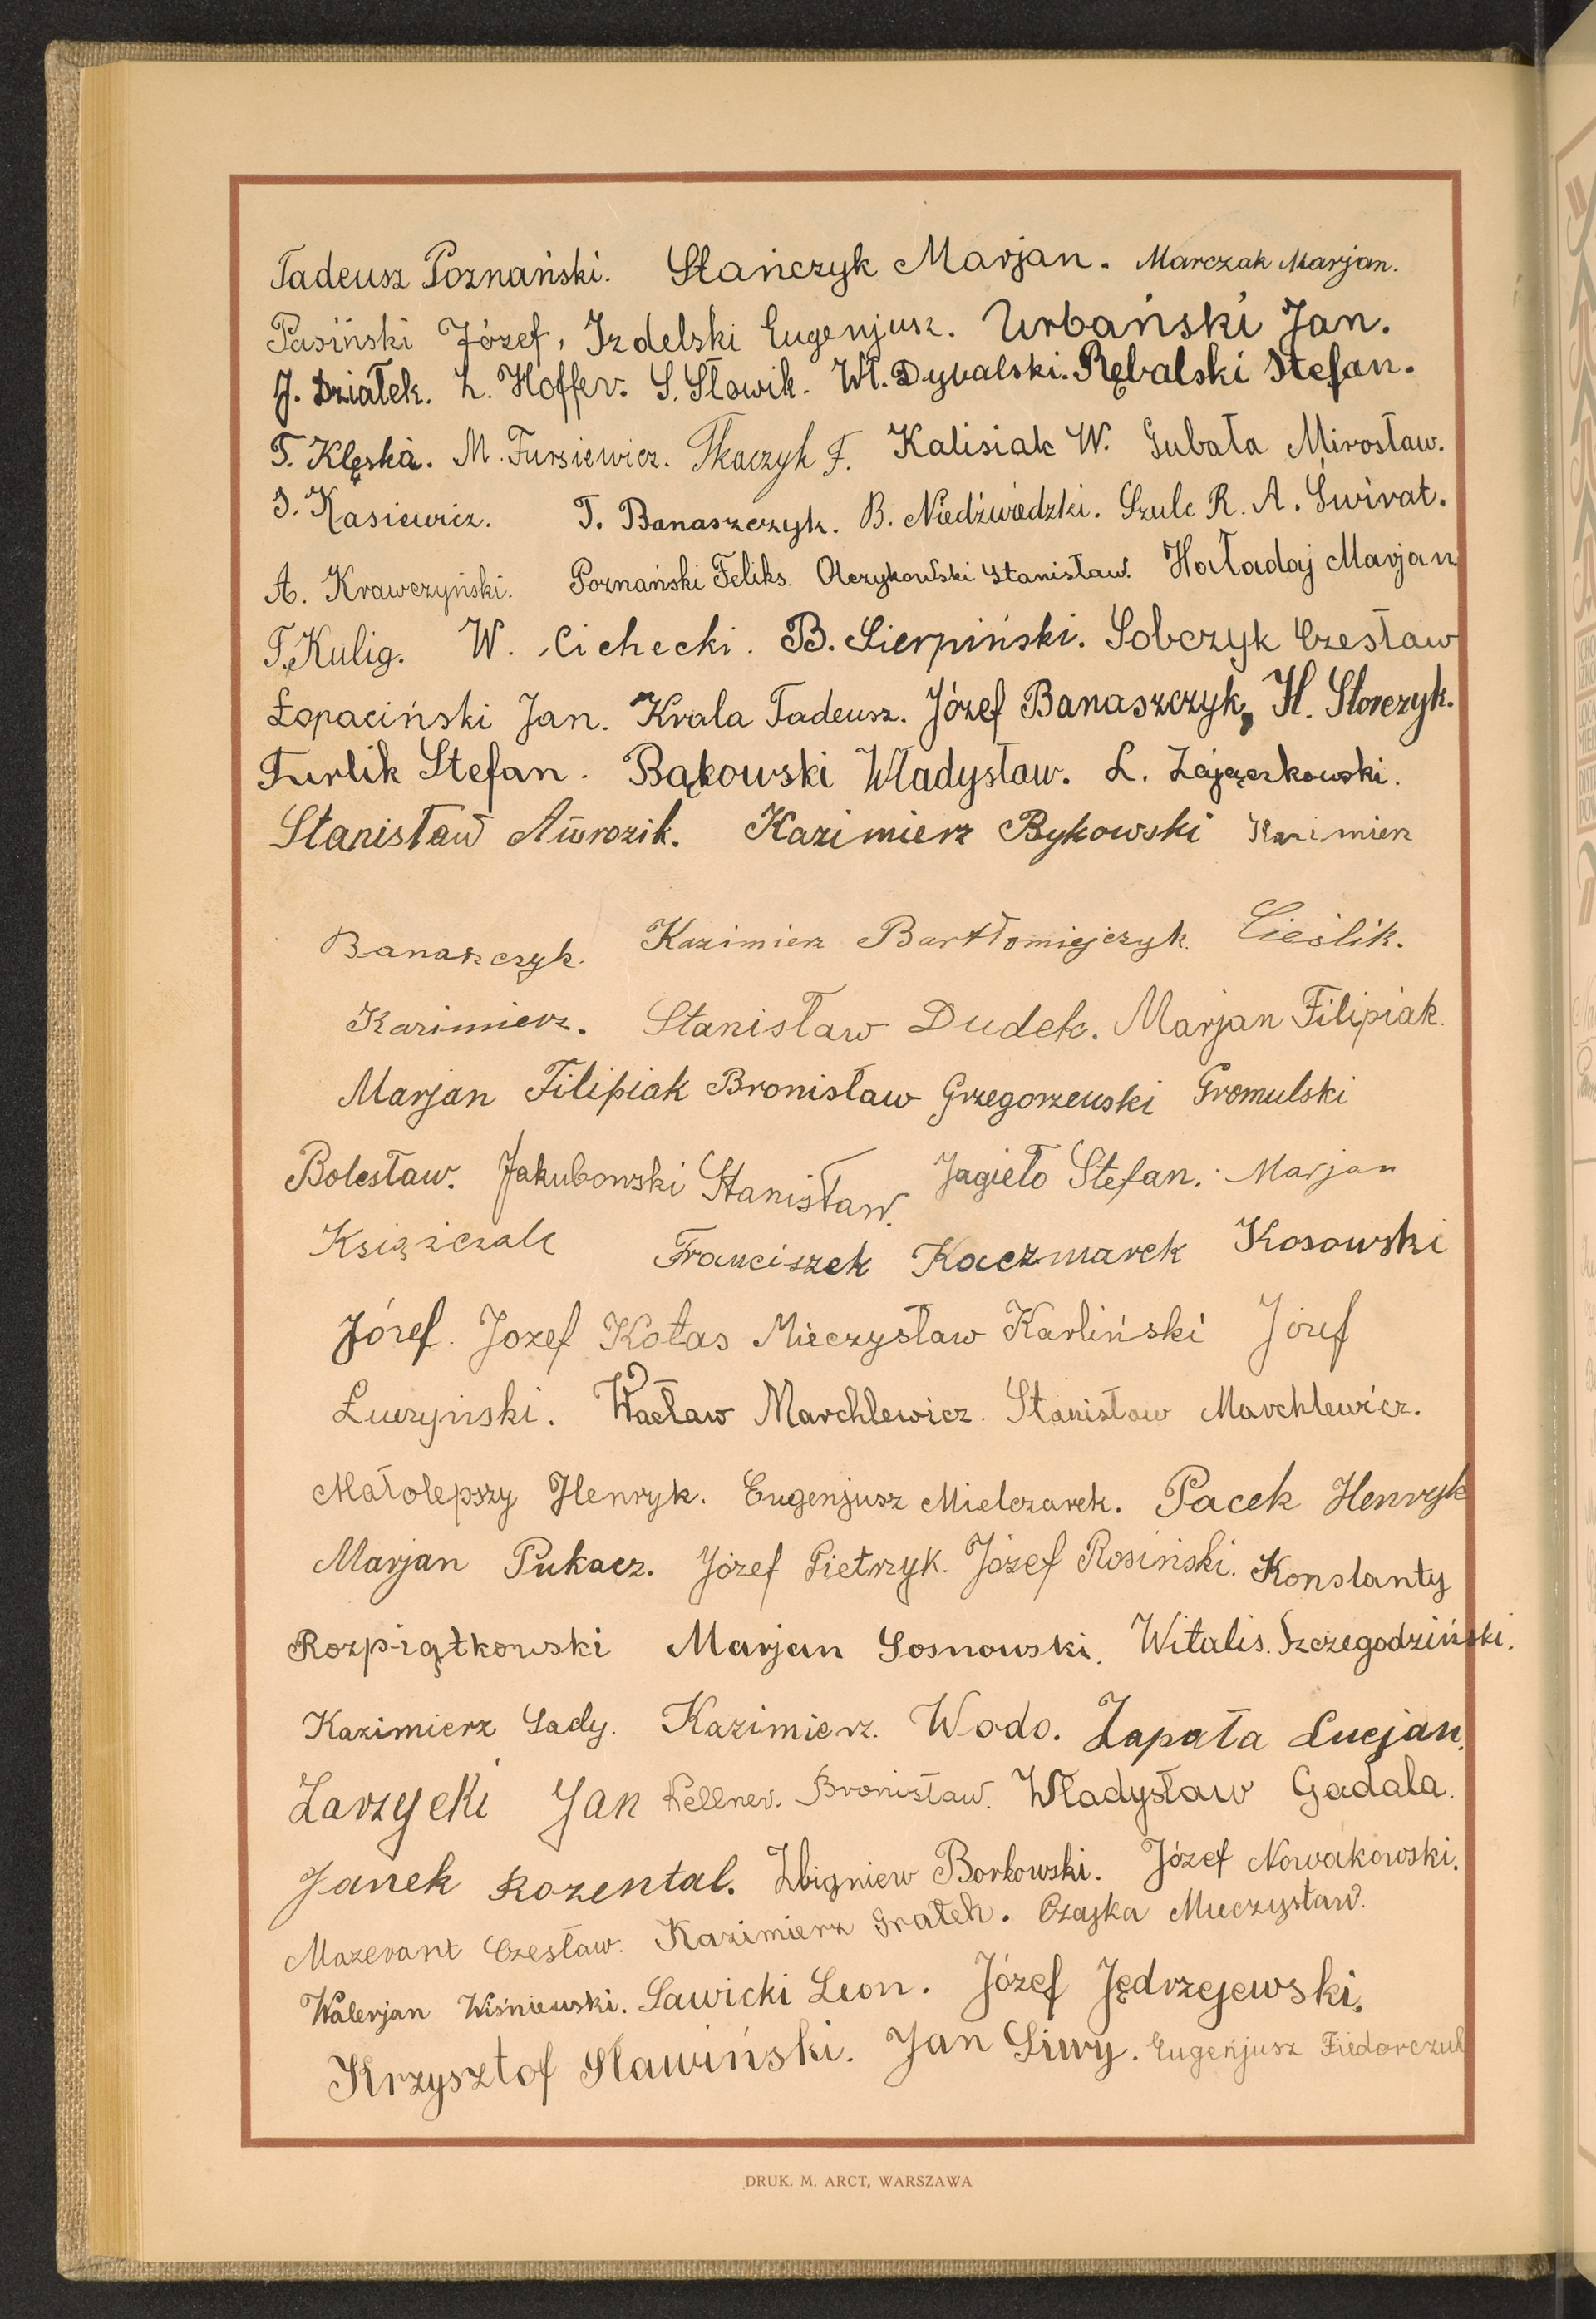 Tadeusz Poznański. Stańczyk Marjan. Marczak Marjan.
Pasiński Józef, Izdelski Eugenjusz. Urbański Jan.
J. Działek. L. Hoffer. S. Słowik. Wł. Dybalski. Rębalski Stefan.
T. Klęska. M. Fursiewicz. Tkaczyk F. Kalisiak W. Gubała Mirosław.
J. Kasiewicz. T. Banaszczyk. B. Niedźwiedzki. Szulc R. A. Świrat.
A. Krawczyński. Poznański Feliks. Olczykowski Stanisław. Haładaj Marjan
T. Kulig. W. Cichecki. B. Sierpiński. Sobczyk Czesław
Łopaciński Jan. Krala Tadeusz. Józef Banaszczyk, H. Storczyk.
Turlik Stefan. Bąkowski Władysław. L. Zajączkowski.
Stanisław Awrozik. Kazimierz Bykowski Kazimierz
Banaszczyk. Kazimierz Bartłomiejczyk. Cieślik.
Kazimierz. Stanisław Dudek. Marjan Filipiak.
Marjan Filipiak Bronisław Grzegorzewski Gromulski
Bolesław. Jakubowski Stanisław. Jagieło Stefan. Marjan
Księżczak Franciszek Kaczmarek Kosowski
Józef. Jozef Kołas Mieczysław Karliński Józef
Łuczyński. Wacław Marchlewicz. Stanisław Marchlewicz.
Małolepszy Henryk. Eugenjusz Mielczarek. Pacek Henryk
Marjan Pukacz. Józef Pietrzyk. Józef Rosiński. Konstanty
Rozpiątkowski Marjan Sosnowski. Witalis. Szczegodziński.
Kazimierz Sady. Kazimierz. Wodo. Zapała Lucjan.
Zarzycki Jan Kellner. Bronisław. Władysław Gadala.
Janek Rozental. Zbigniew Borkowski. Józef Nowakowski.
Mazerant Czesław. Kazimierz Grałek. Czajka Mieczysław.
Walerjan Wiśniewski. Sawicki Leon. Józef Jędrzejewski.
Krzysztof Sławiński. Jan Siwy. Eugenjusz Fiedorczuk
DRUK. M. ARCT, WARSZAWA